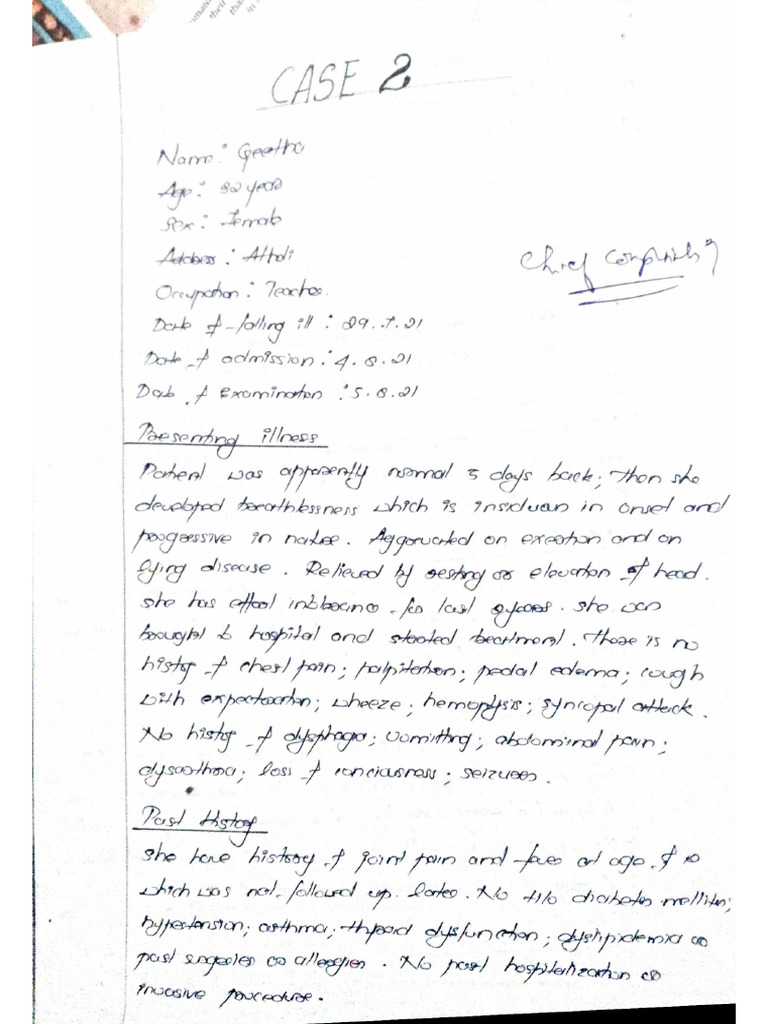 CASE 2
Name: Geetha
Age: 32 years
Sex: Female
Address: Atholi
Occupation: Teacher.
Chief Complaints?
Date of falling ill: 29.7.21
Date of admission: 4.8.21
Date of Examination: 5.8.21
Presenting illness
Patient was apparently normal 5 days back; then she
developed breathlessness which is insiduan in onset and
progressive in nature. Aggravated on exertion and on
lying disease. Relieved by resting or elevation of head.
She has effort for last years. She was
brought to hospital and started treatment. There is no
history of chest pain; palpitation; pedal edema; cough
with expectoration; wheeze; hemoptysis; syncopal attack.
No history of dysphagia; vomitting; abdominal pain;
dysarthria; loss of conciousness; seizures.
Past History
She have history of joint pain and fever at age of 10
which was not followed up later. No H/o diabetes mellitus;
hypertension; asthma; thyroid dysfunction; dyslipidemia or
past surgeries or allergies. No past hospitalization or
invasive procedure.